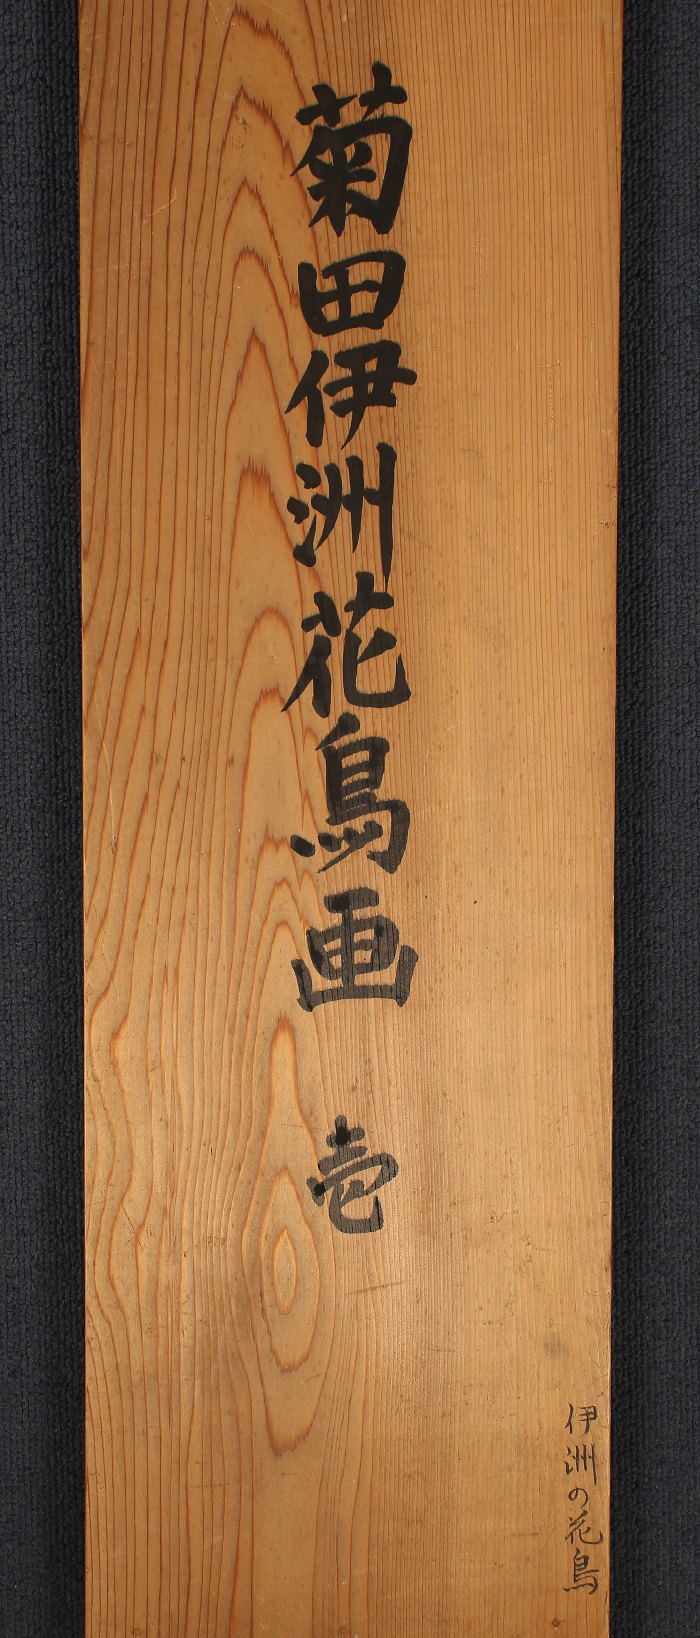 菊田伊洲花鳥画 壱
伊洲の花鳥